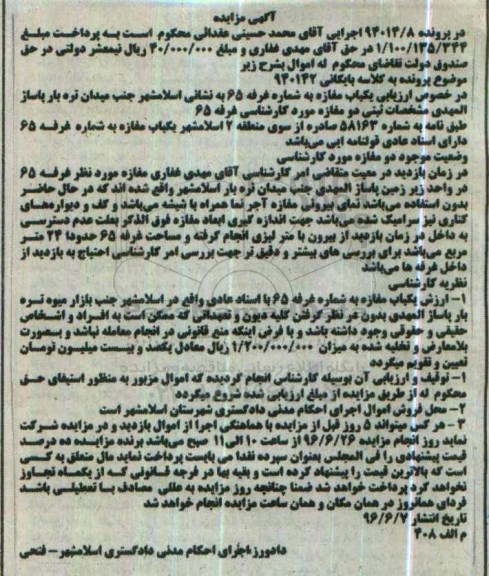 آگهی مزایده
در پرونده ۹۴۰۱۴/۸ اجرایی آقای محمد حسینی مقدائی محکوم است به پرداخت مبلغ
۱/۱۰۰/۱۳۵/۳۴۴ در حق آقای مهدی غفاری و مبلغ ۴۰/۰۰۰/۰۰۰ ریال نیمعشر دولتی در حق
صندوق دولت تقاضای محکوم له اموال بشرح زیر
موضوع پرونده به کلاسه بایگانی ۹۴۰۱۴۲
در خصوص ارزیابی یکباب مغازه به شماره غرفه ۶۵ به نشانی اسلامشهر جنب میدان تره بار پاساژ
المهدی مشخصات ثبتی دو مغازه مورد کارشناسی غرفه ۶۵
طبق نامه به شماره ۵۸۱۶۳ صادره از سوی منطقه ۲ اسلامشهر یکباب مغازه به شماره غرفه ۶۵
دارای اسناد عادی قولنامه ایی می‌باشد
وضعیت موجود دو مغازه مورد کارشناسی
در زمان بازدید در معیت متقاضی امر کارشناسی آقای مهدی غفاری مغازه مورد نظر غرفه ۶۵
در واحد زیر زمین پاساژ المهدی جنب میدان تره بار اسلامشهر واقع شده اند که در حال حاضر
بدون استفاده می‌باشد نمای بیرونی مغازه آجر نما همراه با شیشه می‌باشد و کف و دیواره‌های
کناری نیز سرامیک شده می‌باشد جهت اندازه گیری ابعاد مغازه فوق الذکر بعلت عدم دسترسی
به داخل در زمان بازدید از بیرون با متر لیزی انجام گرفته و مساحت غرفه ۶۵ حدودا ۲۴ متر
مربع می‌باشد برای بررسی های بیشتر و دقیق تر جهت بررسی امر کارشناسی احتیاج به بازدید از
داخل غرفه ها می‌باشد
نظریه کارشناسی
۱- ارزش یکباب مغازه به شماره غرفه ۶۵ با اسناد عادی واقع در اسلامشهر جنب بازار میوه تره
بار پاساژ المهدی بدون در نظر گرفتن کلیه دیون و تعهداتی که ممکن است به افراد و اشخاص
حقیقی و حقوقی وجود داشته باشد و با فرض اینکه منع قانونی در انجام معامله نباشد و بصورت
بلامعارض و تخلیه شده به میزان ۱/۲۰۰/۰۰۰/۰۰۰ ریال معادل یکصد و بیست میلیون تومان
تعیین و تقویم میگردد
۱- توقیف و ارزیابی آن بوسیله کارشناسی انجام گردیده که اموال مزبور به منظور استیفای حق
محکوم له از طریق مزایده از مبلغ ارزیابی شده شروع میگردد
۲- محل فروش اموال اجرای احکام مدنی دادگستری شهرستان اسلامشهر است
۳- هر کس میتواند ۵ روز قبل از مزایده با هماهنگی اجرا از اموال بازدید و در مزایده شرکت
نماید روز انجام مزایده ۹۶/۶/۲۶ از ساعت ۱۰ الی ۱۱ صبح می‌باشد برنده مزایده ده درصد
قیمت پیشنهادی را فی المجلس بعنوان سپرده نقدا می بایست پرداخت نماید مال متعلق به کسی
است که بالاترین قیمت را پیشنهاد کرده است و بقیه بها در فرجه قانونی که از یکماه تجاوز
نخواهد کرد پرداخت خواهد شد ضمنا چنانچه روز مزایده به عللی مصادف با تعطیلی باشد
فردای همانروز در همان مکان و همان ساعت مزایده انجام خواهد شد
تاریخ انتشار ۹۶/۶/۷
م الف ۴۰۸
دادورز اجرای احکام مدنی دادگستری اسلامشهر - فتحی